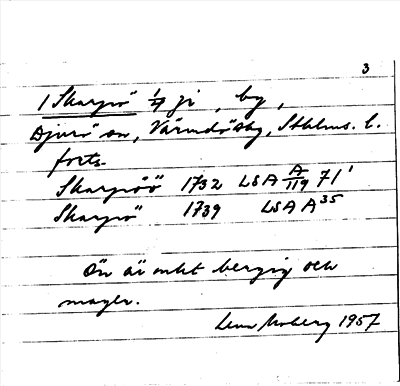 3
1 Skarpö ¼ ji, by,
Djurö sn, Värmdö sbg, Sthlms. l.
forts.
Skarpöö 1732 LSA A/119 71'
Skarpö 1739 LSA A35
Ön är mkt bergig och
mager.
Lena Moberg 1957